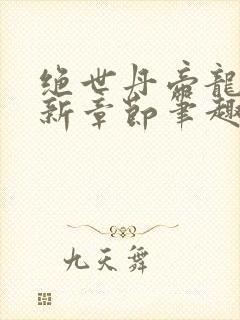 绝世丹帝龍
新章節筆趣
九天舞